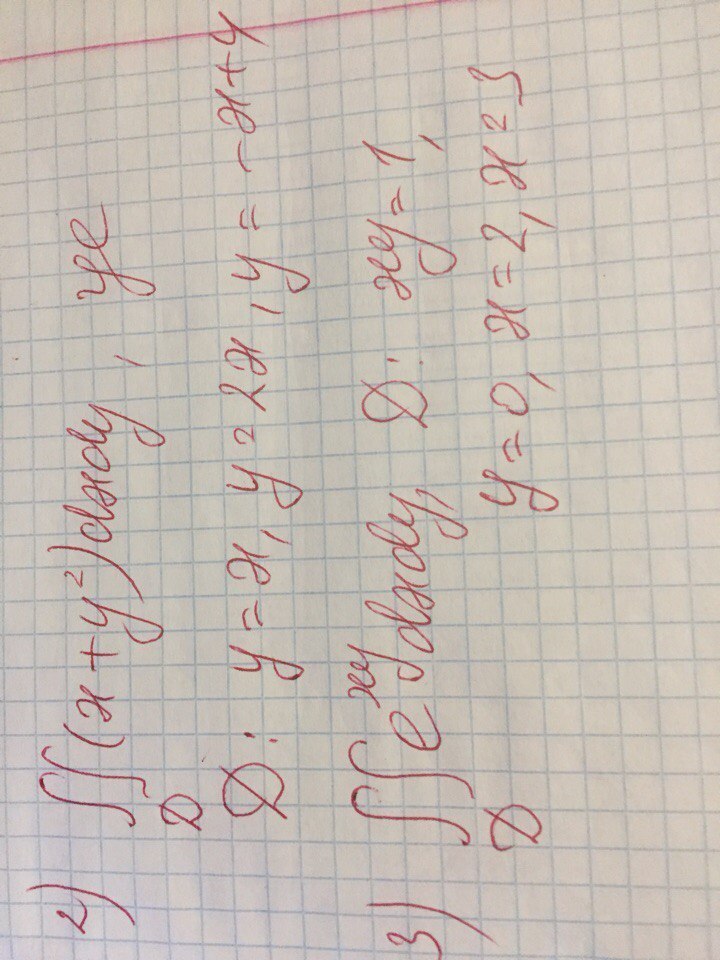 2) ∬_D (x + y²)dxdy, де
D: y = x, y = 2x, y = -x + 4
3) ∬_D e^{xy}dxdy, D: xy = 1,
y = 0, x = 2, x = 3